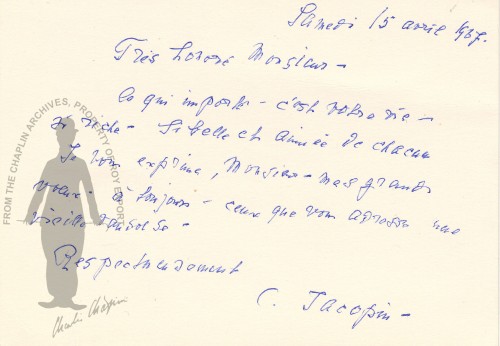 Samedi 15 avril 1967.
Très honoré Monsieur -
Ce qui importe - c'est votre vie -
si riche - si belle et aimée de chacun
Je vous exprime, Monsieur - mes grands
voeux - à toujours - ceux que vous adresse une
vieille
Respectueusement
C. Jacopin -
FROM THE CHAPLIN ARCHIVES, PROPERTY OF ROY EXPORT
Charlie Chaplin